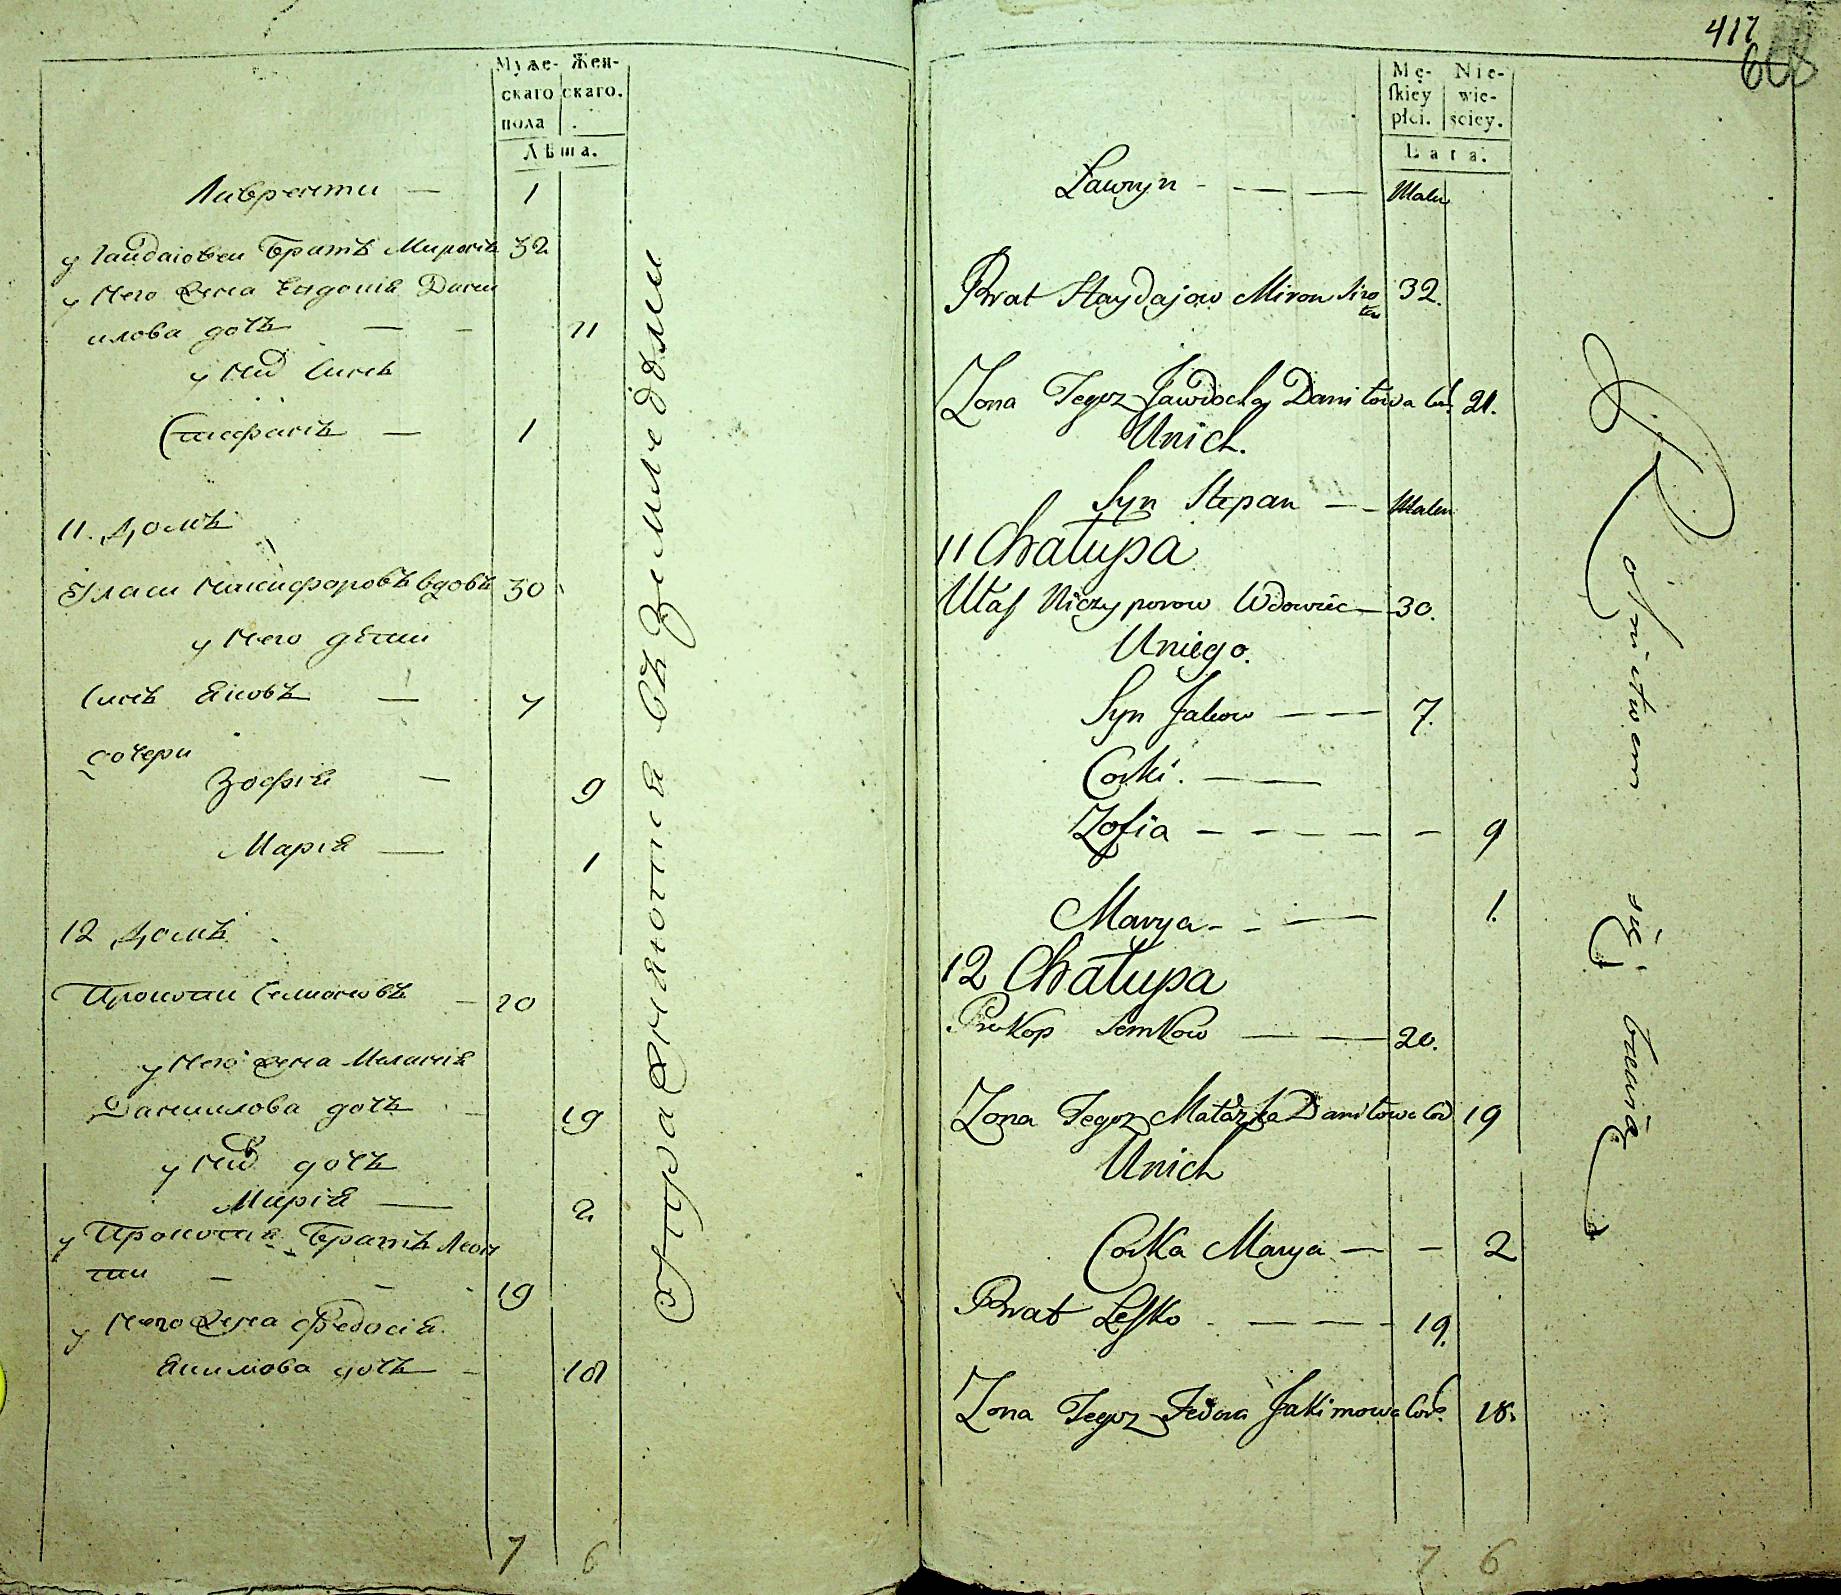 Муже- Жен-
скаго скаго.
пола
Лѣта.
Лаврентии — 1
у Гаидаіовси Братъ Миронъ 32
у Него жена Евдокіѣ Дани
илова дочъ — - 21
у Них Синъ
Стефанъ — 1
11. Домъ
Уласи Никифоровъ вдовъ 30
у Него дѣти
Синъ Яковъ — 7
дочери
Зофиѣ — 9
Маріѣ — 1
12 Домъ
Прокопи Семионовъ — 20
у Него жена Маланиѣ
Даниилова дочъ - 19
у Них дочъ
Маріѣ — 2
у Прокопиѣ Братъ Леон
тии - - - 19
у Него жена Федосіѣ
Якимова дочъ - 18
7 6
въ Зимиедоми
417
668
Mę- Nie-
skiey wie-
płci. sciey.
Lata.
Ławryn - — — — Malu
Brat Haydajow Miron Siro 32.
ta
Zona Tegoz Jawdocha Daniłowa Cor. 21.
Unich.
Syn Stepan — - Malu
11 Chałupa
Ułas Niczyporow Wdowiec — 30.
Uniego.
Syn Jakow — — — 7.
Corki. — —
Zofia — — — — — — 9
Marya - - — — 1.
12 Chałupa
Prokop Semkow — — 20.
Zona Tegoz Małaszka Daniłowa Cor 19
Unich
Corka Marya — — 2
Brat Lesko - — — — — 19.
Zona Tegoz Fedora Jakimowa Cor. 18.
7 6
się